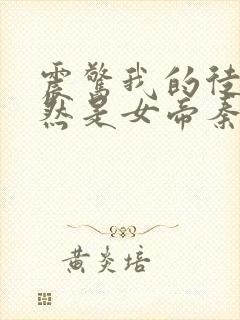 震惊我的徒
然是女帝秦
黄炎培